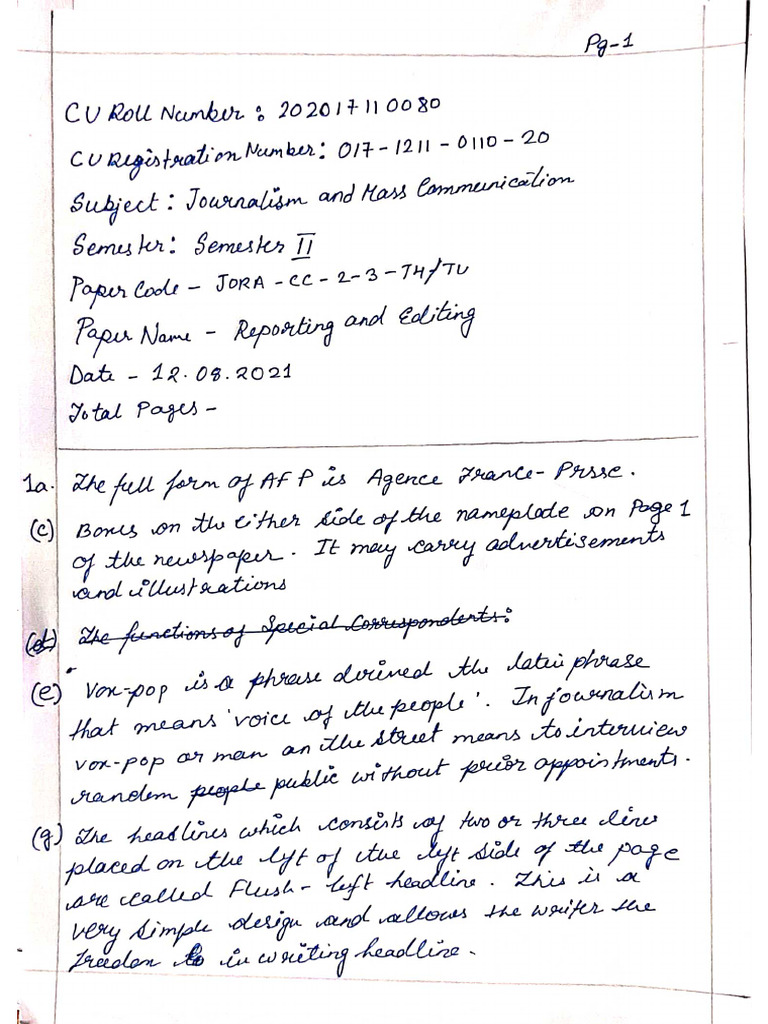 Pg-1
CU Roll Number : 202017110080
CU Registration Number: 017-1211-0110-20
Subject : Journalism and Mass Communication
Semester: Semester II
Paper Code - JORA-CC-2-3-TH/TU
Paper Name - Reporting and Editing
Date - 12.08.2021
Total Pages -
1a. The full form of AFP is Agence France-Prsse.
(c) Boxes on the either side of the nameplade on Page 1
of the newspaper. It may carry advertisements
and illustrations
(d) The functions of Special Correspondents:
(e) Vox-pop is a phrase derined the latin phrase
that means 'voice of the people'. In journalism
vox-pop or man on the street means to interview
random people public without prior appointments.
(g) The headlines which consists of two or three line
placed on the lyft of the lyft side of the page
are called Flush-left headline. This is a
very simple design and allows the writer the
freedon to in writing headline.